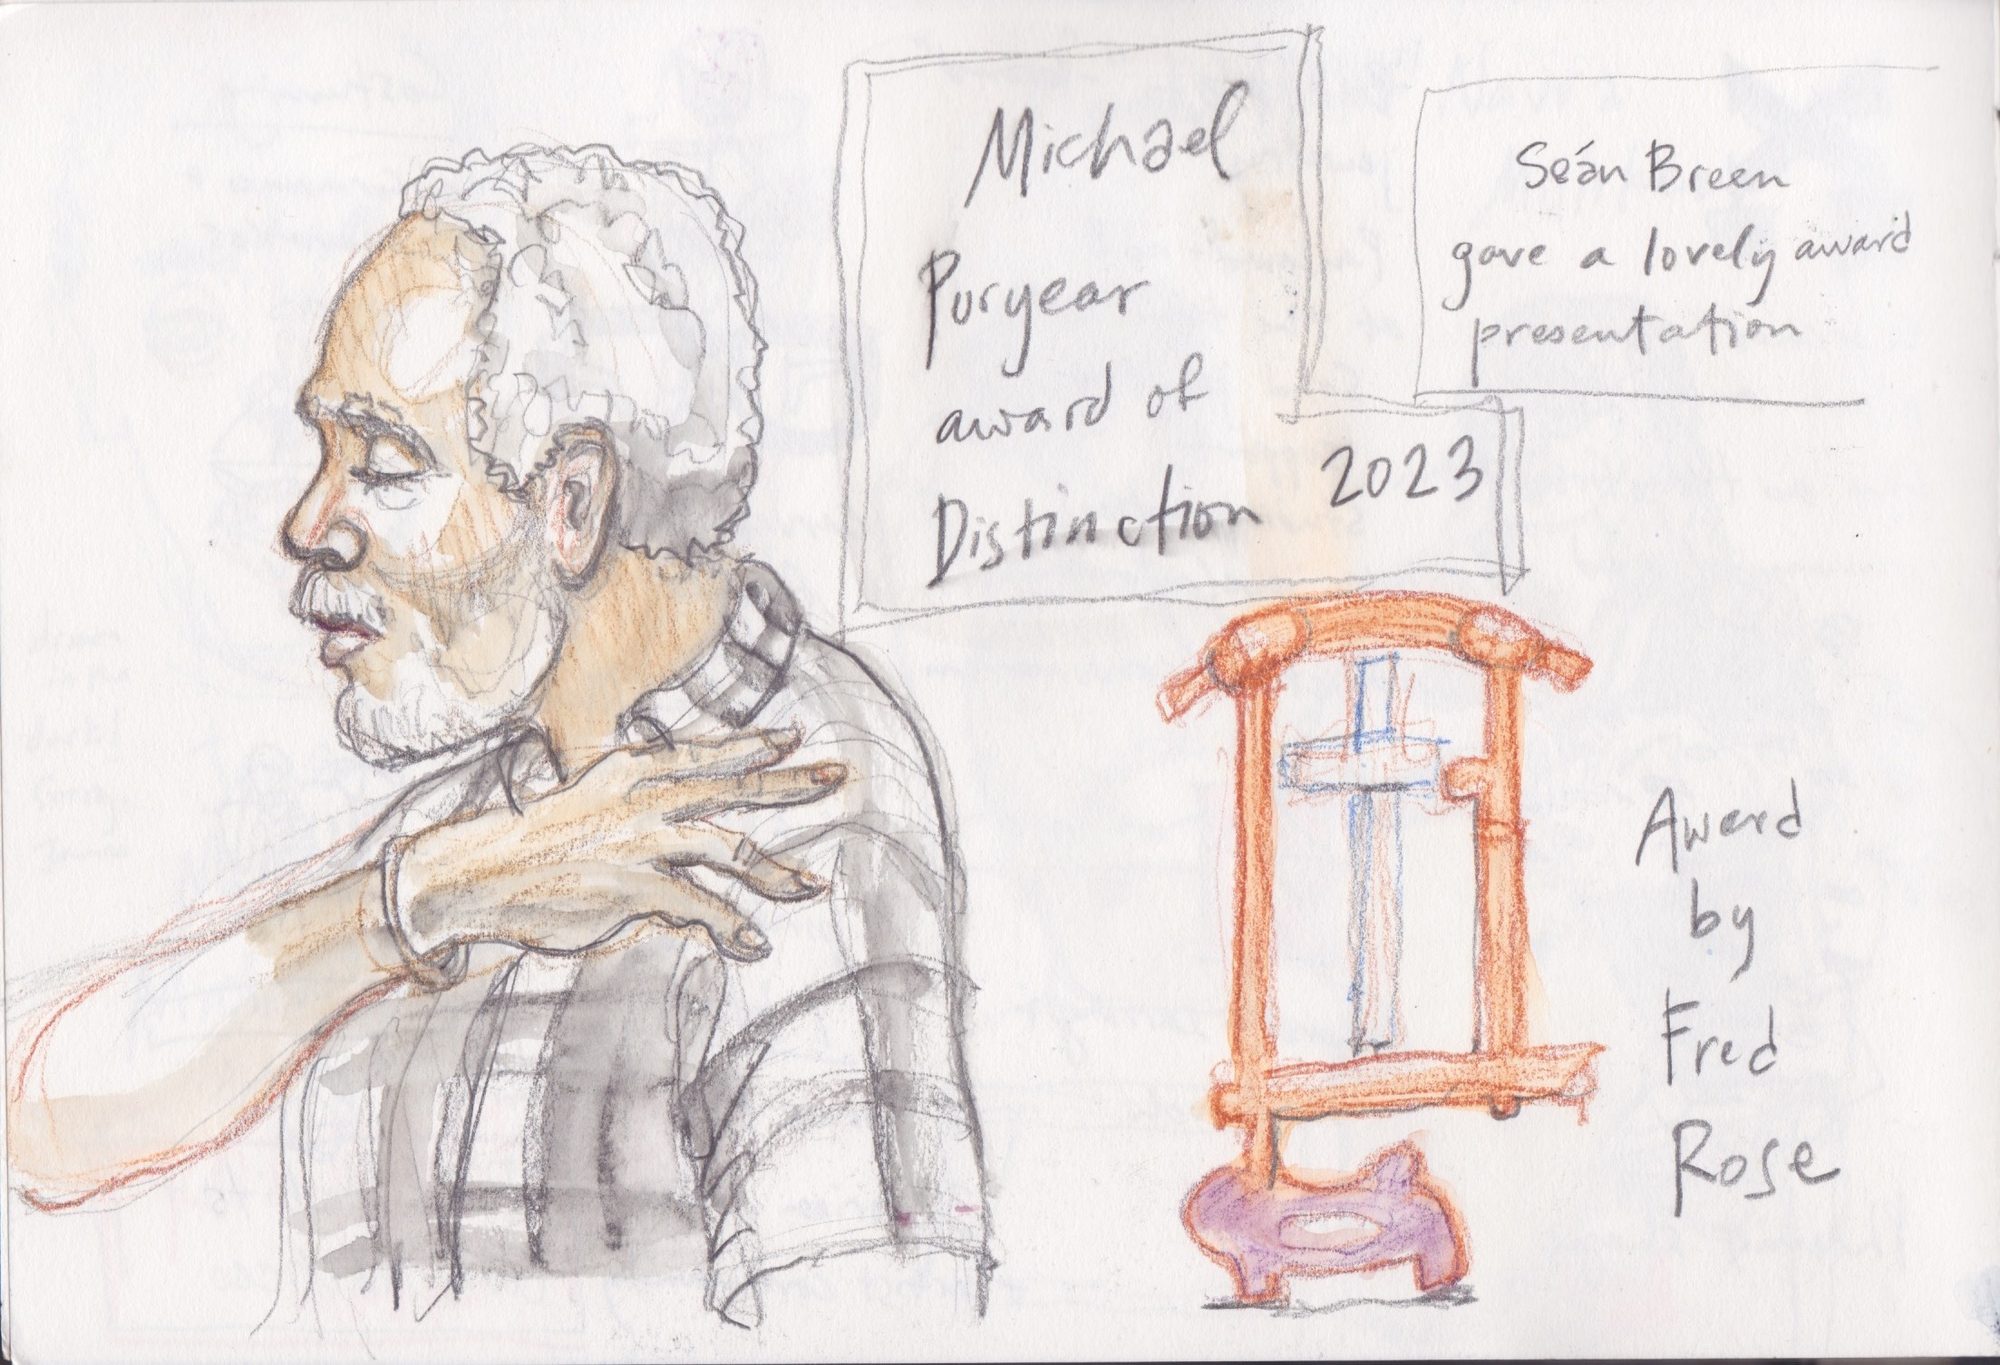 Michael
Puryear
award of
Distinction 2023
Seán Breen
gave a lovely award
presentation
Award
by
Fred
Rose